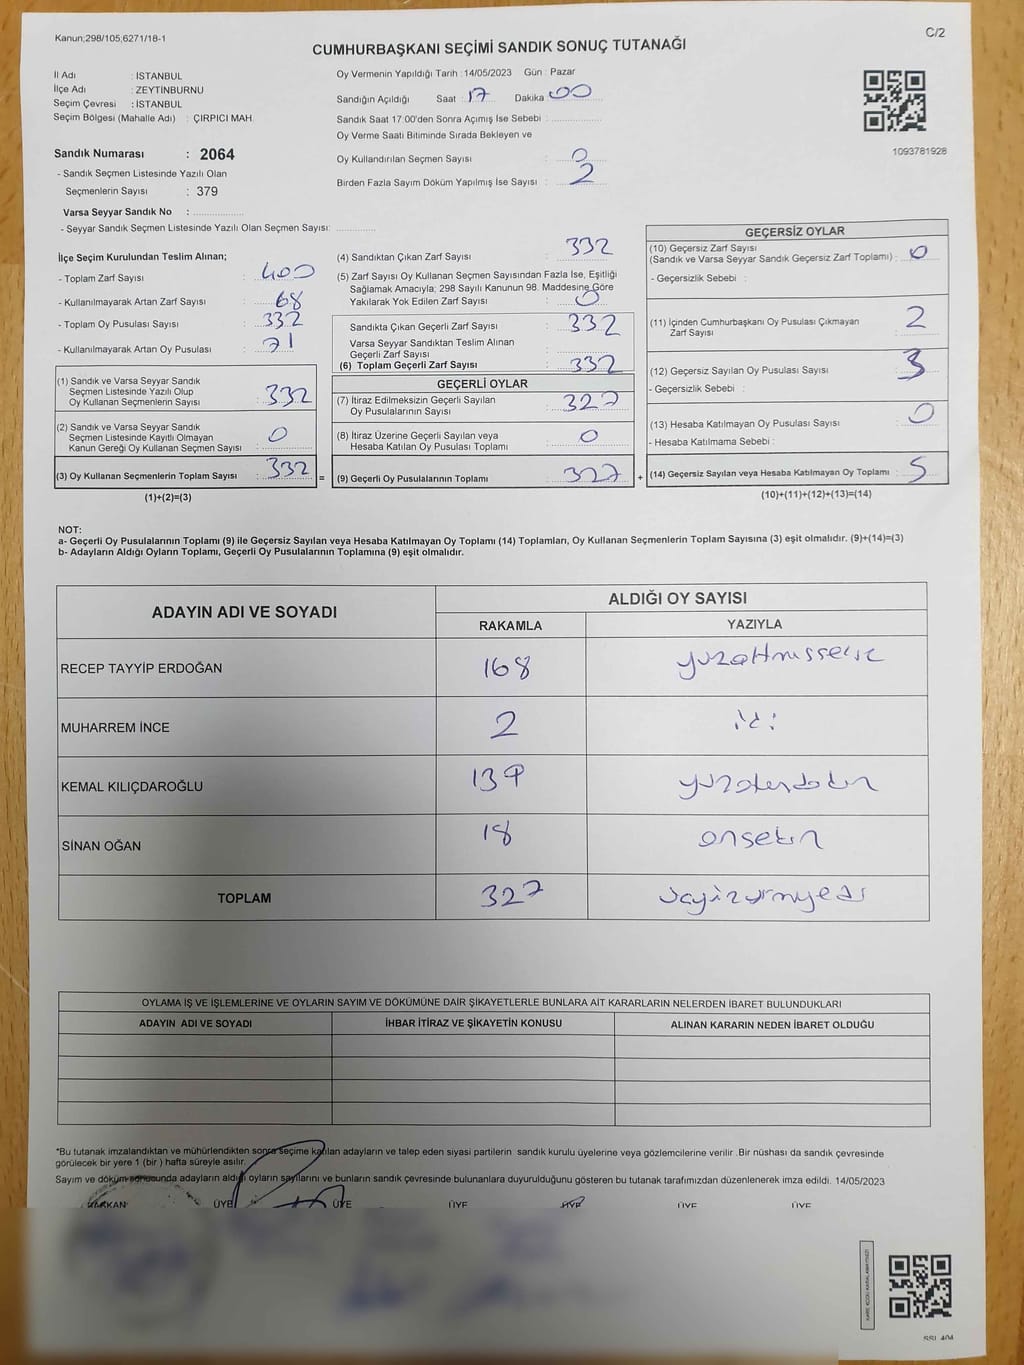 Kanun;298/105,6271/18-1
C/2
CUMHURBAŞKANI SEÇİMİ SANDIK SONUÇ TUTANAĞI
İl Adı : İSTANBUL
İlçe Adı : ZEYTİNBURNU
Seçim Çevresi : İSTANBUL
Seçim Bölgesi (Mahalle Adı) : ÇIRPICI MAH.
Sandık Numarası : 2064
- Sandık Seçmen Listesinde Yazılı Olan
Seçmenlerin Sayısı : 379
Varsa Seyyar Sandık No :
- Seyyar Sandık Seçmen Listesinde Yazılı Olan Seçmen Sayısı:
Oy Vermenin Yapıldığı Tarih :14/05/2023 Gün : Pazar
Sandığın Açıldığı Saat : 17 Dakika : 00
Sandık Saat 17:00'den Sonra Açımış İse Sebebi :
Oy Verme Saati Bitiminde Sırada Bekleyen ve
Oy Kullandırılan Seçmen Sayısı : 0
Birden Fazla Sayım Döküm Yapılmış İse Sayısı : 2
1093781928
İlçe Seçim Kurulundan Teslim Alınan;
- Toplam Zarf Sayısı : 400
- Kullanılmayarak Artan Zarf Sayısı : 68
- Toplam Oy Pusulası Sayısı : 332
- Kullanılmayarak Artan Oy Pusulası : 71
(1) Sandık ve Varsa Seyyar Sandık
Seçmen Listesinde Yazılı Olup
Oy Kullanan Seçmenlerin Sayısı : 332
(2) Sandık ve Varsa Seyyar Sandık
Seçmen Listesinde Kayıtlı Olmayan
Kanun Gereği Oy Kullanan Seçmen Sayısı : 0
(3) Oy Kullanan Seçmenlerin Toplam Sayısı : 332
(1)+(2)=(3)
(4) Sandıktan Çıkan Zarf Sayısı : 332
(5) Zarf Sayısı Oy Kullanan Seçmen Sayısından Fazla İse, Eşitliği
Sağlamak Amacıyla; 298 Sayılı Kanunun 98. Maddesine Göre
Yakılarak Yok Edilen Zarf Sayısı : 0
Sandıkta Çıkan Geçerli Zarf Sayısı : 332
Varsa Seyyar Sandıktan Teslim Alınan
Geçerli Zarf Sayısı :
(6) Toplam Geçerli Zarf Sayısı : 332
GEÇERLİ OYLAR
(7) İtiraz Edilmeksizin Geçerli Sayılan
Oy Pusulalarının Sayısı : 327
(8) İtiraz Üzerine Geçerli Sayılan veya
Hesaba Katılan Oy Pusulası Toplamı : 0
= (9) Geçerli Oy Pusulalarının Toplamı : 327 +
GEÇERSİZ OYLAR
(10) Geçersiz Zarf Sayısı
(Sandık ve Varsa Seyyar Sandık Geçersiz Zarf Toplamı) : 0
- Geçersizlik Sebebi :
(11) İçinden Cumhurbaşkanı Oy Pusulası Çıkmayan
Zarf Sayısı : 2
(12) Geçersiz Sayılan Oy Pusulası Sayısı : 3
- Geçersizlik Sebebi :
(13) Hesaba Katılmayan Oy Pusulası Sayısı : 0
- Hesaba Katılmama Sebebi :
(14) Geçersiz Sayılan veya Hesaba Katılmayan Oy Toplamı : 5
(10)+(11)+(12)+(13)=(14)
NOT:
a- Geçerli Oy Pusulalarının Toplamı (9) ile Geçersiz Sayılan veya Hesaba Katılmayan Oy Toplamı (14) Toplamları, Oy Kullanan Seçmenlerin Toplam Sayısına (3) eşit olmalıdır. (9)+(14)=(3)
b- Adayların Aldığı Oyların Toplamı, Geçerli Oy Pusulalarının Toplamına (9) eşit olmalıdır.
ADAYIN ADI VE SOYADI ALDIĞI OY SAYISI
RAKAMLA YAZIYLA
RECEP TAYYİP ERDOĞAN 168 yüzaltmışsekiz
MUHARREM İNCE 2 iki
KEMAL KILIÇDAROĞLU 139 yüzotuzdokuz
SİNAN OĞAN 18 onsekiz
TOPLAM 327 üçyüzyirmiyedi
OYLAMA İŞ VE İŞLEMLERİNE VE OYLARIN SAYIM VE DÖKÜMÜNE DAİR ŞİKAYETLERLE BUNLARA AİT KARARLARIN NELERDEN İBARET BULUNDUKLARI
ADAYIN ADI VE SOYADI İHBAR İTİRAZ VE ŞİKAYETİN KONUSU ALINAN KARARIN NEDEN İBARET OLDUĞU
*Bu tutanak imzalandıktan ve mühürlendikten sonra seçime katılan adayların ve talep eden siyasi partilerin sandık kurulu üyelerine veya gözlemcilerine verilir .Bir nüshası da sandık çevresinde
görülecek bir yere 1 (bir ) hafta süreyle asılır.
Sayım ve döküm sonucunda adayların aldığı oyların sayılarını ve bunların sandık çevresinde bulunanlara duyurulduğunu gösteren bu tutanak tarafımızdan düzenlenerek imza edildi. 14/05/2023
BAŞKAN ÜYE ÜYE ÜYE ÜYE ÜYE ÜYE